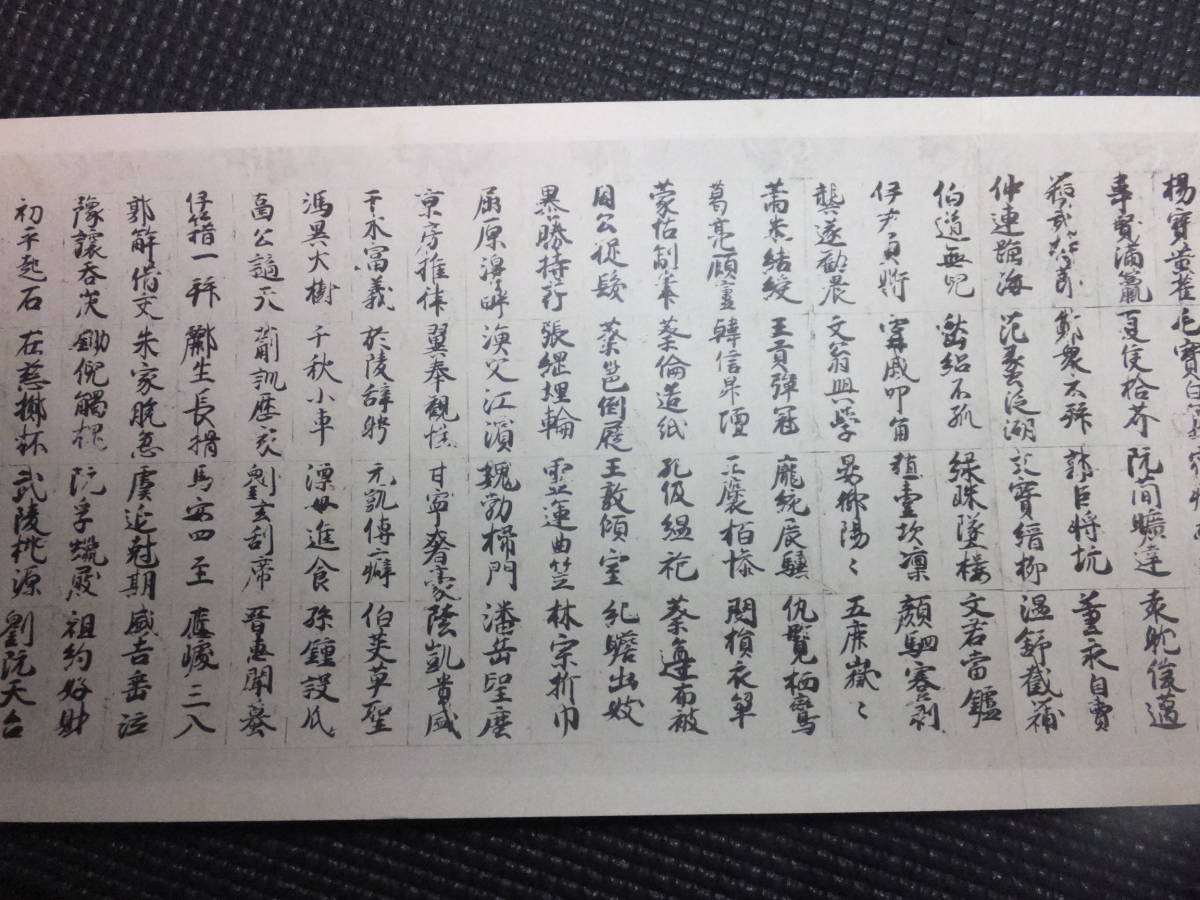 楊寶黃雀 毛寶白龜
韋賢滿籯 夏侯拾芥 阮簡曠達 袁耽俊邁
蘇武持節 鄭衆不拜 郭巨將坑 董永自賣
仲連蹈海 范蠡泛湖 文寶緝柳 温舒截蒲
伯道無兒 嵆紹不孤 緑珠墜樓 文君當鑪
伊尹負鼎 甯戚叩角 趙壹坎凛 顔駟蹇剥
龔遂勸農 文翁興學 晏御陽〻 五鹿嶽〻
蕭朱結綬 王貢彈冠 龐統展驥 仇覽栖鸞
葛亮顧廬 韓信昇壇 王裒栢慘 閔損衣單
蒙恬制筆 蔡倫造紙 孔伋緼袍 蔡遵布被
周公握髮 蔡邕倒屣 王敦傾室 紀瞻出妓
暴勝持斧 張綱埋輪 靈運曲笠 林宗折巾
屈原澤畔 漁父江濱 魏勃掃門 潘岳望塵
京房推律 翼奉觀性 甘寧奢豪 陸凱貴盛
干木富義 於陵辭聘 元凱傳癖 伯英草聖
馮異大樹 千秋小車 漂母進食 孫鍾設瓜
壺公謫天 薊訓歷家 劉玄刮席 晉惠聞蟇
伊籍一拜 酈生長揖 馬安四至 應璩三入
郭解借交 朱家脱急 虞延尅期 盛吉垂泣
豫讓吞炭 鉏倪觸槐 阮孚蠟屐 祖約好財
初平起石 左慈擲杯 武陵桃源 劉阮天台